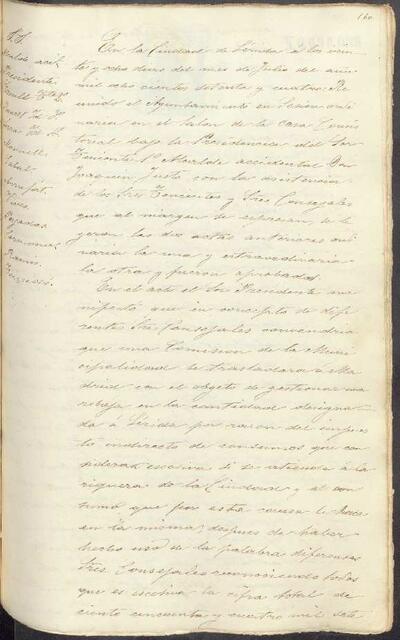 160.
En la Ciudad de Lérida a los vein-
te y ocho dias del mes de Julio del año
mil ocho cientos setenta y cuatro: Re-
unido el Ayuntamiento en Sesion ordi-
naria en el Salon de la casa Consis-
torial bajo la Presidencia del Sor
Teniente 1º Alcalde accidental Don
Joaquin Juste con la asistencia
de los Sres Tenientes y Sres Consejales
que al margen se espresan, se le-
yeron las dos actas anteriores ordi-
naria la una y extraordinaria
la otra y fueron aprobadas.
En el acto el Sor Presidente ma-
nifestó que en concepto de dife-
rentes Sres Consejales convendria
que una Comision de la Muni-
cipalidad se trasladara á Ma-
drid con el objeto de gestionar una
rebaja en la cantidad designa-
da á Lérida por razon del impues-
to indirecto de consumos que con-
sideran escesiva si se atiende á la
riqueza de la Ciudad y al con-
sumo que por esta causa se hace
en la misma; despues de haber
hecho uso de la palabra diferentes
Sres. Consejales reconociendo todos
que es escesiva la cifra total de
ciento cincuenta y cuatro mil seis
S.S.
Presidente